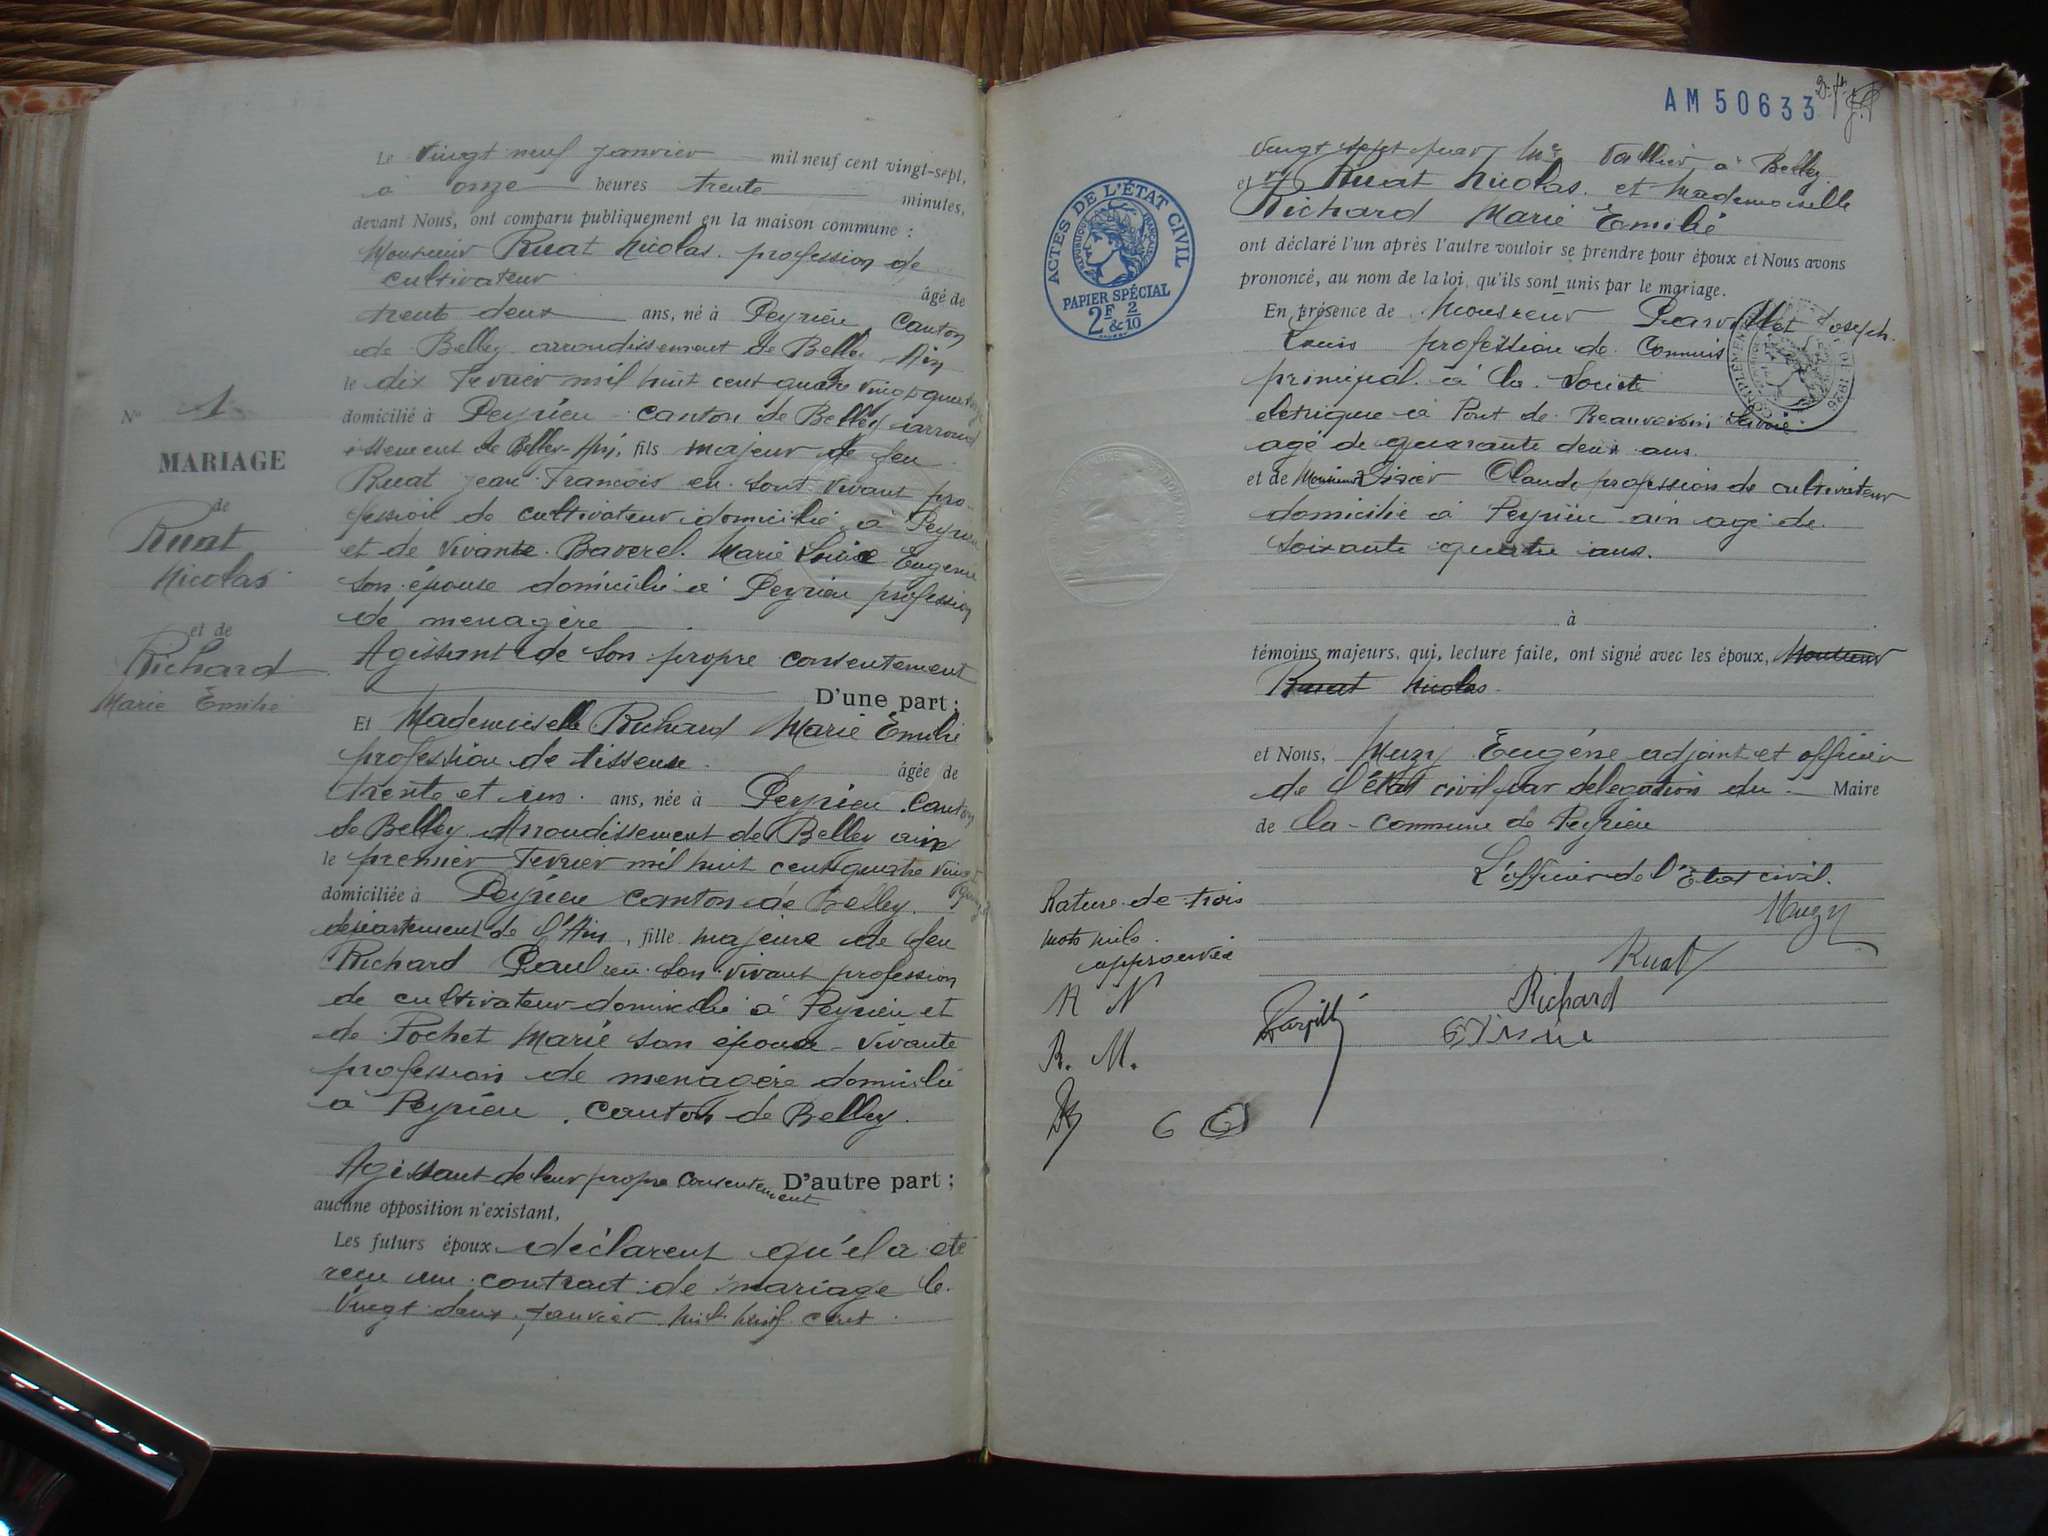 Nº 1
MARIAGE
de
Ruat
Nicolas
et de
Richard
Marie Emilie
Le vingt neuf janvier mil neuf cent vingt-sept,
à onze heures trente minutes,
devant Nous, ont comparu publiquement en la maison commune :
Monsieur Ruat Nicolas. profession de
cultivateur âgé de
trente deux ans, né à Peyrieu Canton
de Belley arrondissement de Belley Ain
le dix Fevrier mil huit cent quatre vingt quatorze
domicilié à Peyrieu canton de Belley arrond
issement de Belley-Ain, fils majeur de feu
Ruat Jean Francois en sont vivant pro-
fession de cultivateur domicilié à Peyrieu
et de vivante Baverel Marie Louise Eugenie
son épouse domicilié à Peyrieu profession
de menagère
Agissant de son propre consentement
D'une part ;
Et Mademoiselle Richard Marie Emilie
profession de tisseuse âgée de
trente et un ans, née à Peyrieu Canton
de Belley Arrondissement de Belley ain
le premier Fevrier mil huit cent quatre vingt
domiciliée à Peyrieu canton de Belley
département de l'Ain, fille majeure de feu
Richard Paul en son vivant profession
de cultivateur domicilié à Peyrieu et
de Pochet Marie son épouse vivante
profession de menagère domicilié
à Peyrieu. canton de Belley.
Agissant de leur propre consentement D'autre part ;
aucune opposition n'existant,
Les futurs époux déclarent qu'il a été
recu un contract de mariage le
vingt deux Janvier mil neuf cent
AM 50633
vingt sept par Me Vallier à Belley
et Ruat Nicolas et Mademoiselle
Richard Marie Emilie
ont déclaré l'un après l'autre vouloir se prendre pour époux et Nous avons
prononcé, au nom de la loi, qu'ils sont unis par le mariage.
ACTES DE L'ÉTAT CIVIL
RÉPUBLIQUE FRANÇAISE
PAPIER SPÉCIAL
2F & 2/10
En présence de Monsieur Joseph
Louis profession de Commis
principal à la Société
eletrique à Pont de Beauvoisin Savoie
agé de quarante deux ans.
et de Monsieur Claude profession de cultivateur
domicilié à Peyrieu ain agé de
soixante quatre ans.
à
témoins majeurs, qui, lecture faite, ont signé avec les époux, Monsieur
Ruat Nicolas
et Nous, Muzy Eugène adjoint et officier
de l'état civil par delegation du Maire
de la commune de Peyrieu
L'officier de l'Etat civil.
Muzy
Ruat
Richard
Rature de trois
mots nuls
approuvée
R N
R. M.